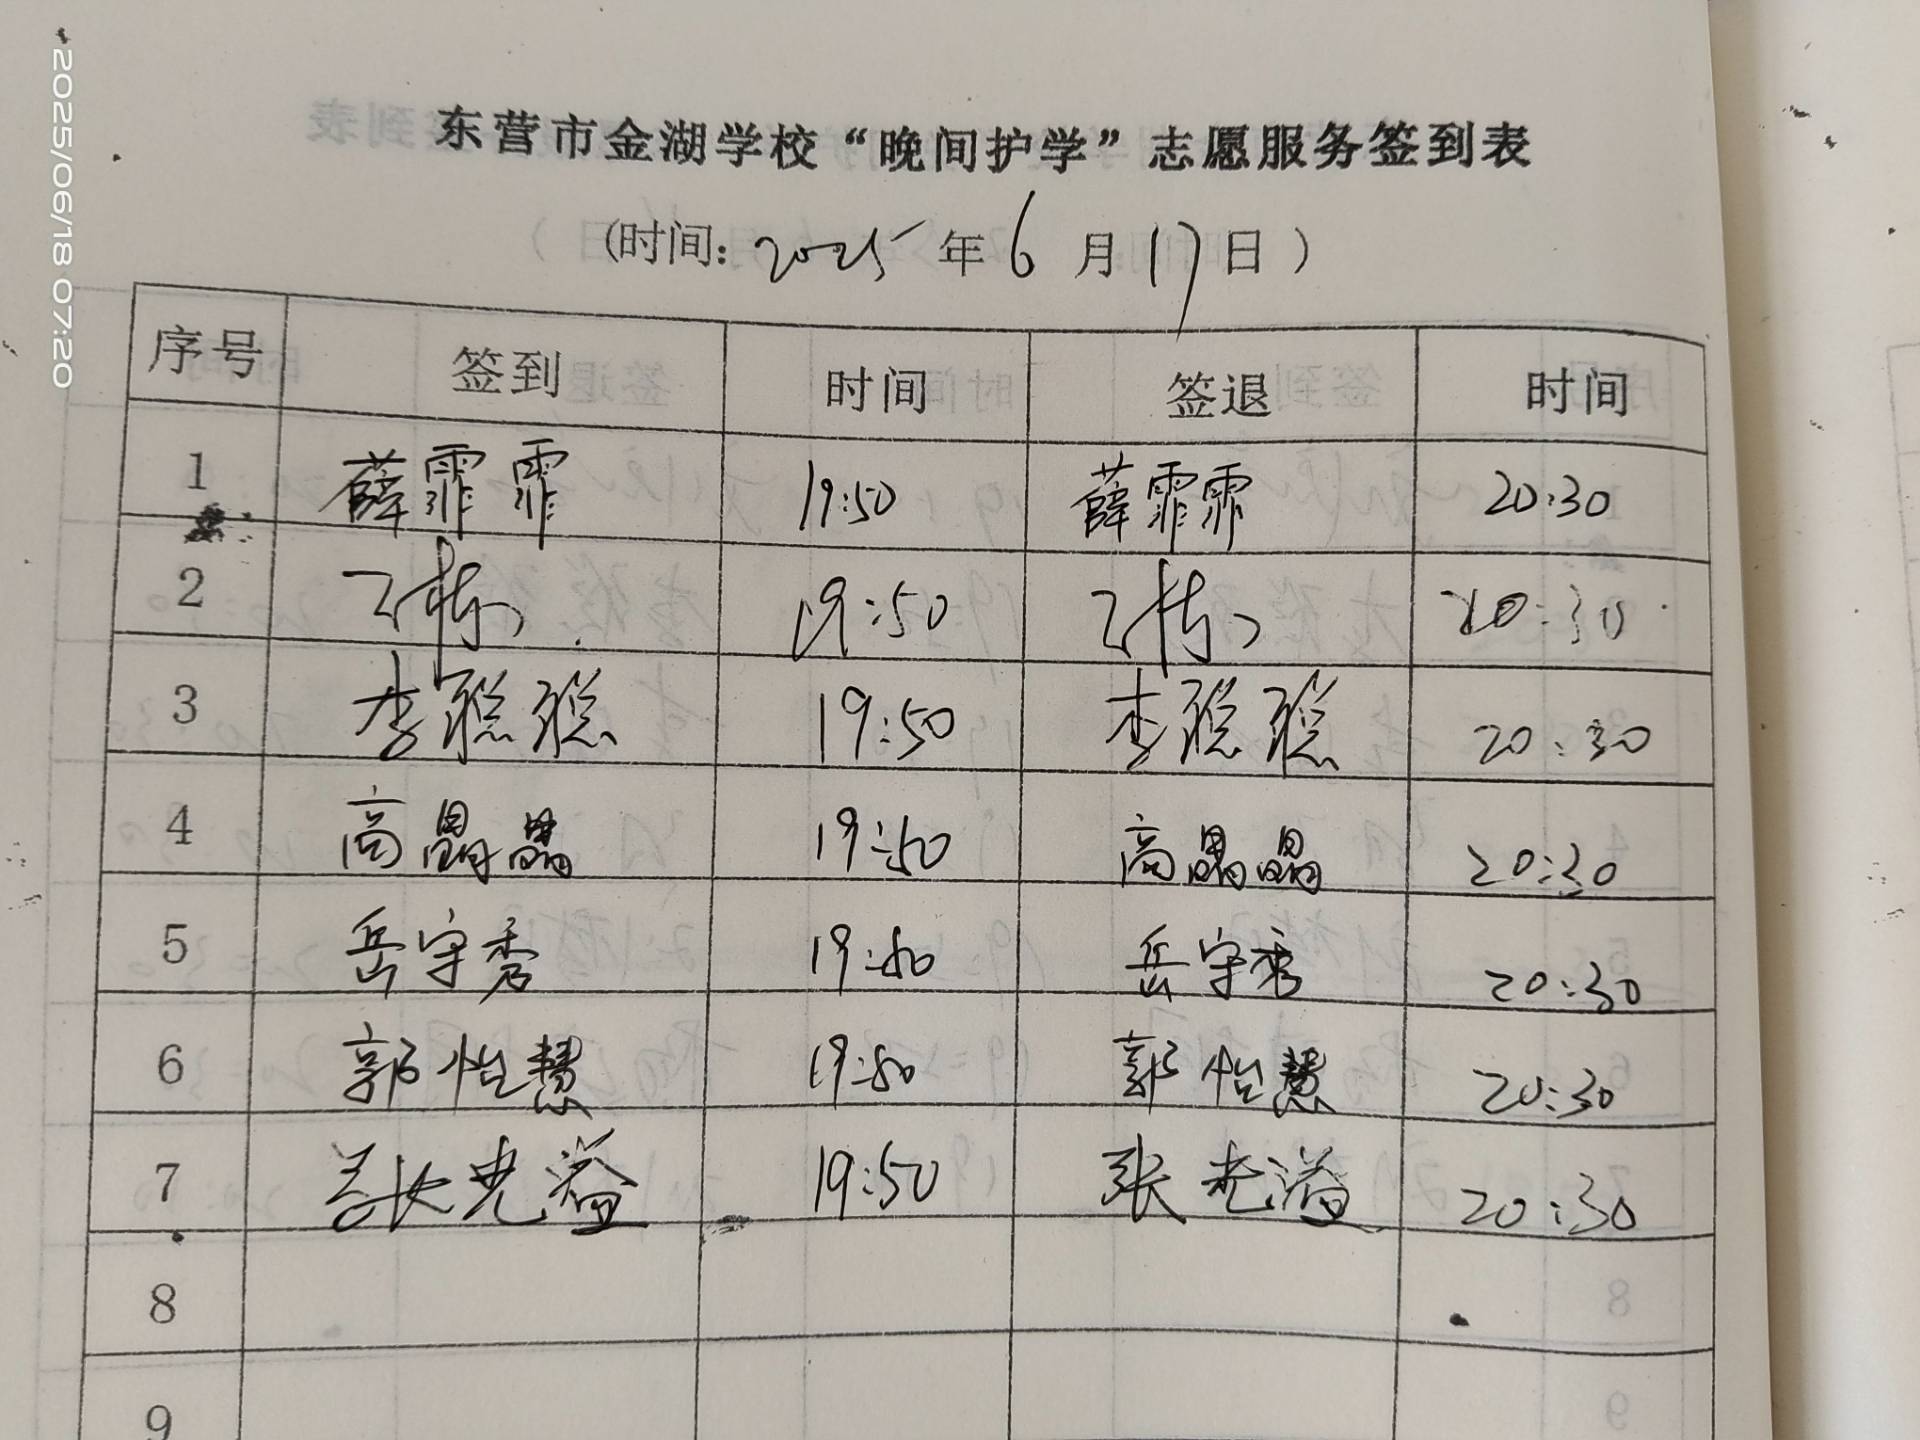 2025/06/18 07:20
东营市金湖学校“晚间护学”志愿服务签到表
(时间: 2025年6月17日)
序号 签到 时间 签退 时间
1 薛霏霏 19:50 薛霏霏 20:30
2 19:50 20:30
3 李聪聪 19:50 李聪聪 20:30
4 高晶晶 19:50 高晶晶 20:30
5 岳守秀 19:50 岳守秀 20:30
6 郭怡慧 19:50 郭怡慧 20:30
7 张光溢 19:50 张光溢 20:30
8
9